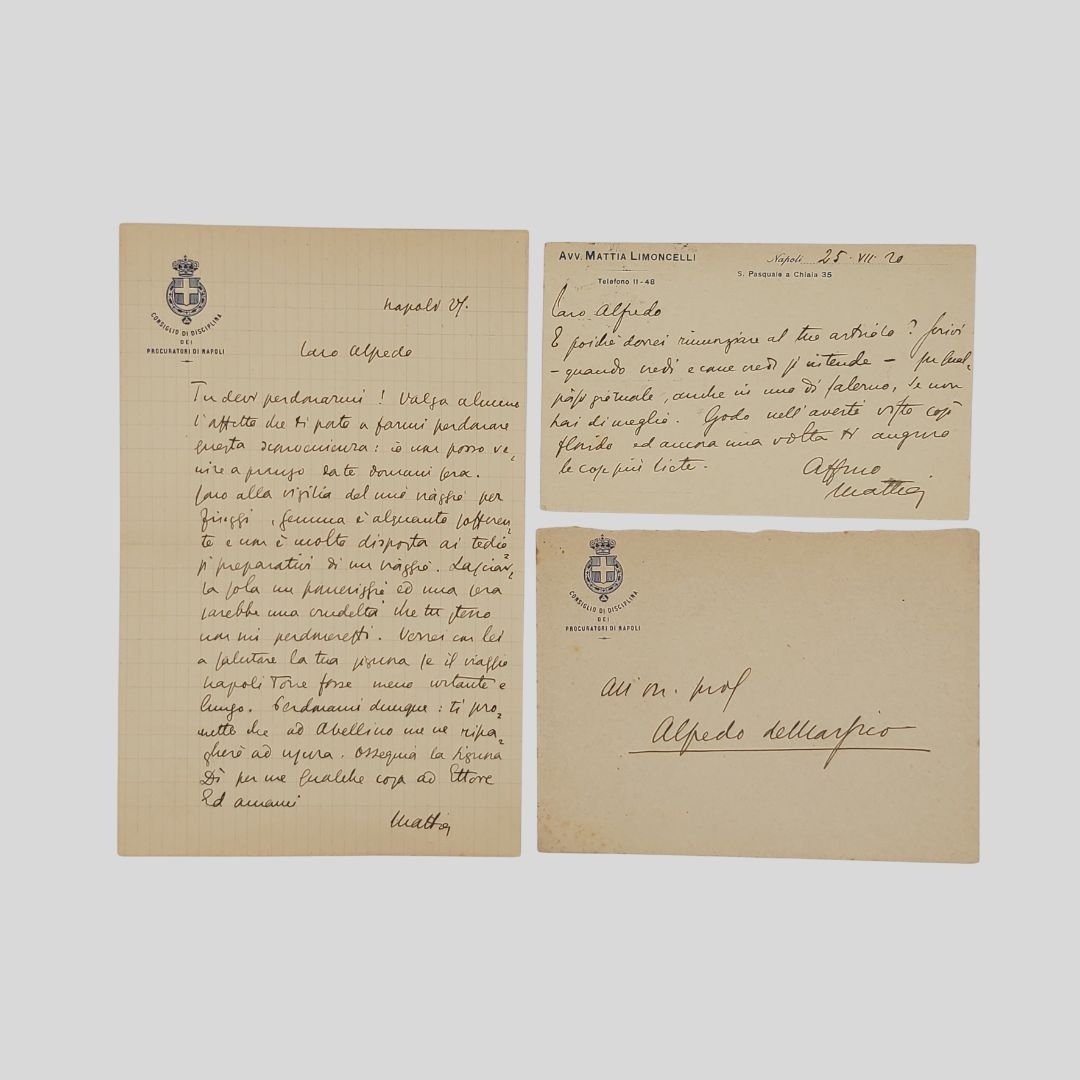 CONSIGLIO DI DISCIPLINA
DEI
PROCURATORI DI NAPOLI
Napoli 27.
Caro Alfredo
Tu devi perdonarmi! Valga almeno
l'affetto che ti porto a farmi perdonare
questa sconvenienza: io non posso ve=
nire a pranzo da te domani sera.
Sono alla vigilia del mio viaggio per
Fiuggi, Gemma è alquanto sofferen=
te e non è molto disposta ai tedio=
si preparativi di un viaggio. Lasciar=
la sola un pomeriggio ed una sera
sarebbe una crudeltà che tu stesso
non mi perdoneresti. Verrei con lei
a salutare la tua signora se il viaggio
Napoli Torre fosse meno urtante e
lungo. Perdonami dunque: ti pro=
metto che ad Avellino me ne ripa=
gherò ad usura. Ossequia la Signora
Dì per me qualche cosa ad Ettore
Ed amami
Mattia
AVV. MATTIA LIMONCELLI
Telefono 11-48
Napoli 25·VII·20
S. Pasquale a Chiaia 35
Caro Alfredo
E poichè dovrei rinunziare al tuo articolo? Scrivi
- quando credi e come credi si intende - su qual=
siasi giornale, anche in uno di Salerno, se non
hai di meglio. Godo nell'averti visto così
florido ed ancora una volta ti auguro
le cose più liete.
Affmo
Mattia
CONSIGLIO DI DISCIPLINA
DEI
PROCURATORI DI NAPOLI
All'on. prof
Alfredo deMarsico